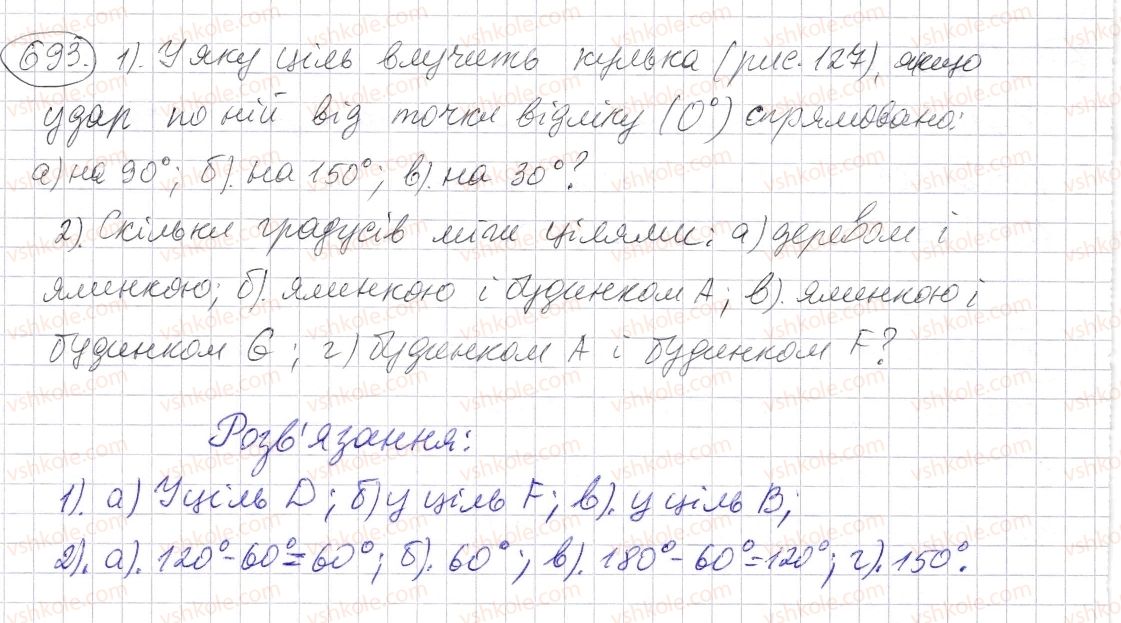 693. 1). У яку ціль влучить кулька (рис. 127), якщо
удар по ній від точки відліку (0°) спрямовано:
а) на 90°; б). на 150°; в). на 30°?
2). Скільки градусів між цілями: а) деревом і
ялинкою; б). ялинкою і будинком А; в). ялинкою і
будинком G; г) будинком А і будинком F?
Розв'язання:
1). а) У ціль D; б) у ціль F; в). у ціль В;
2). а). 120°-60°=60°; б). 60°; в). 180°-60°=120°; г). 150°.